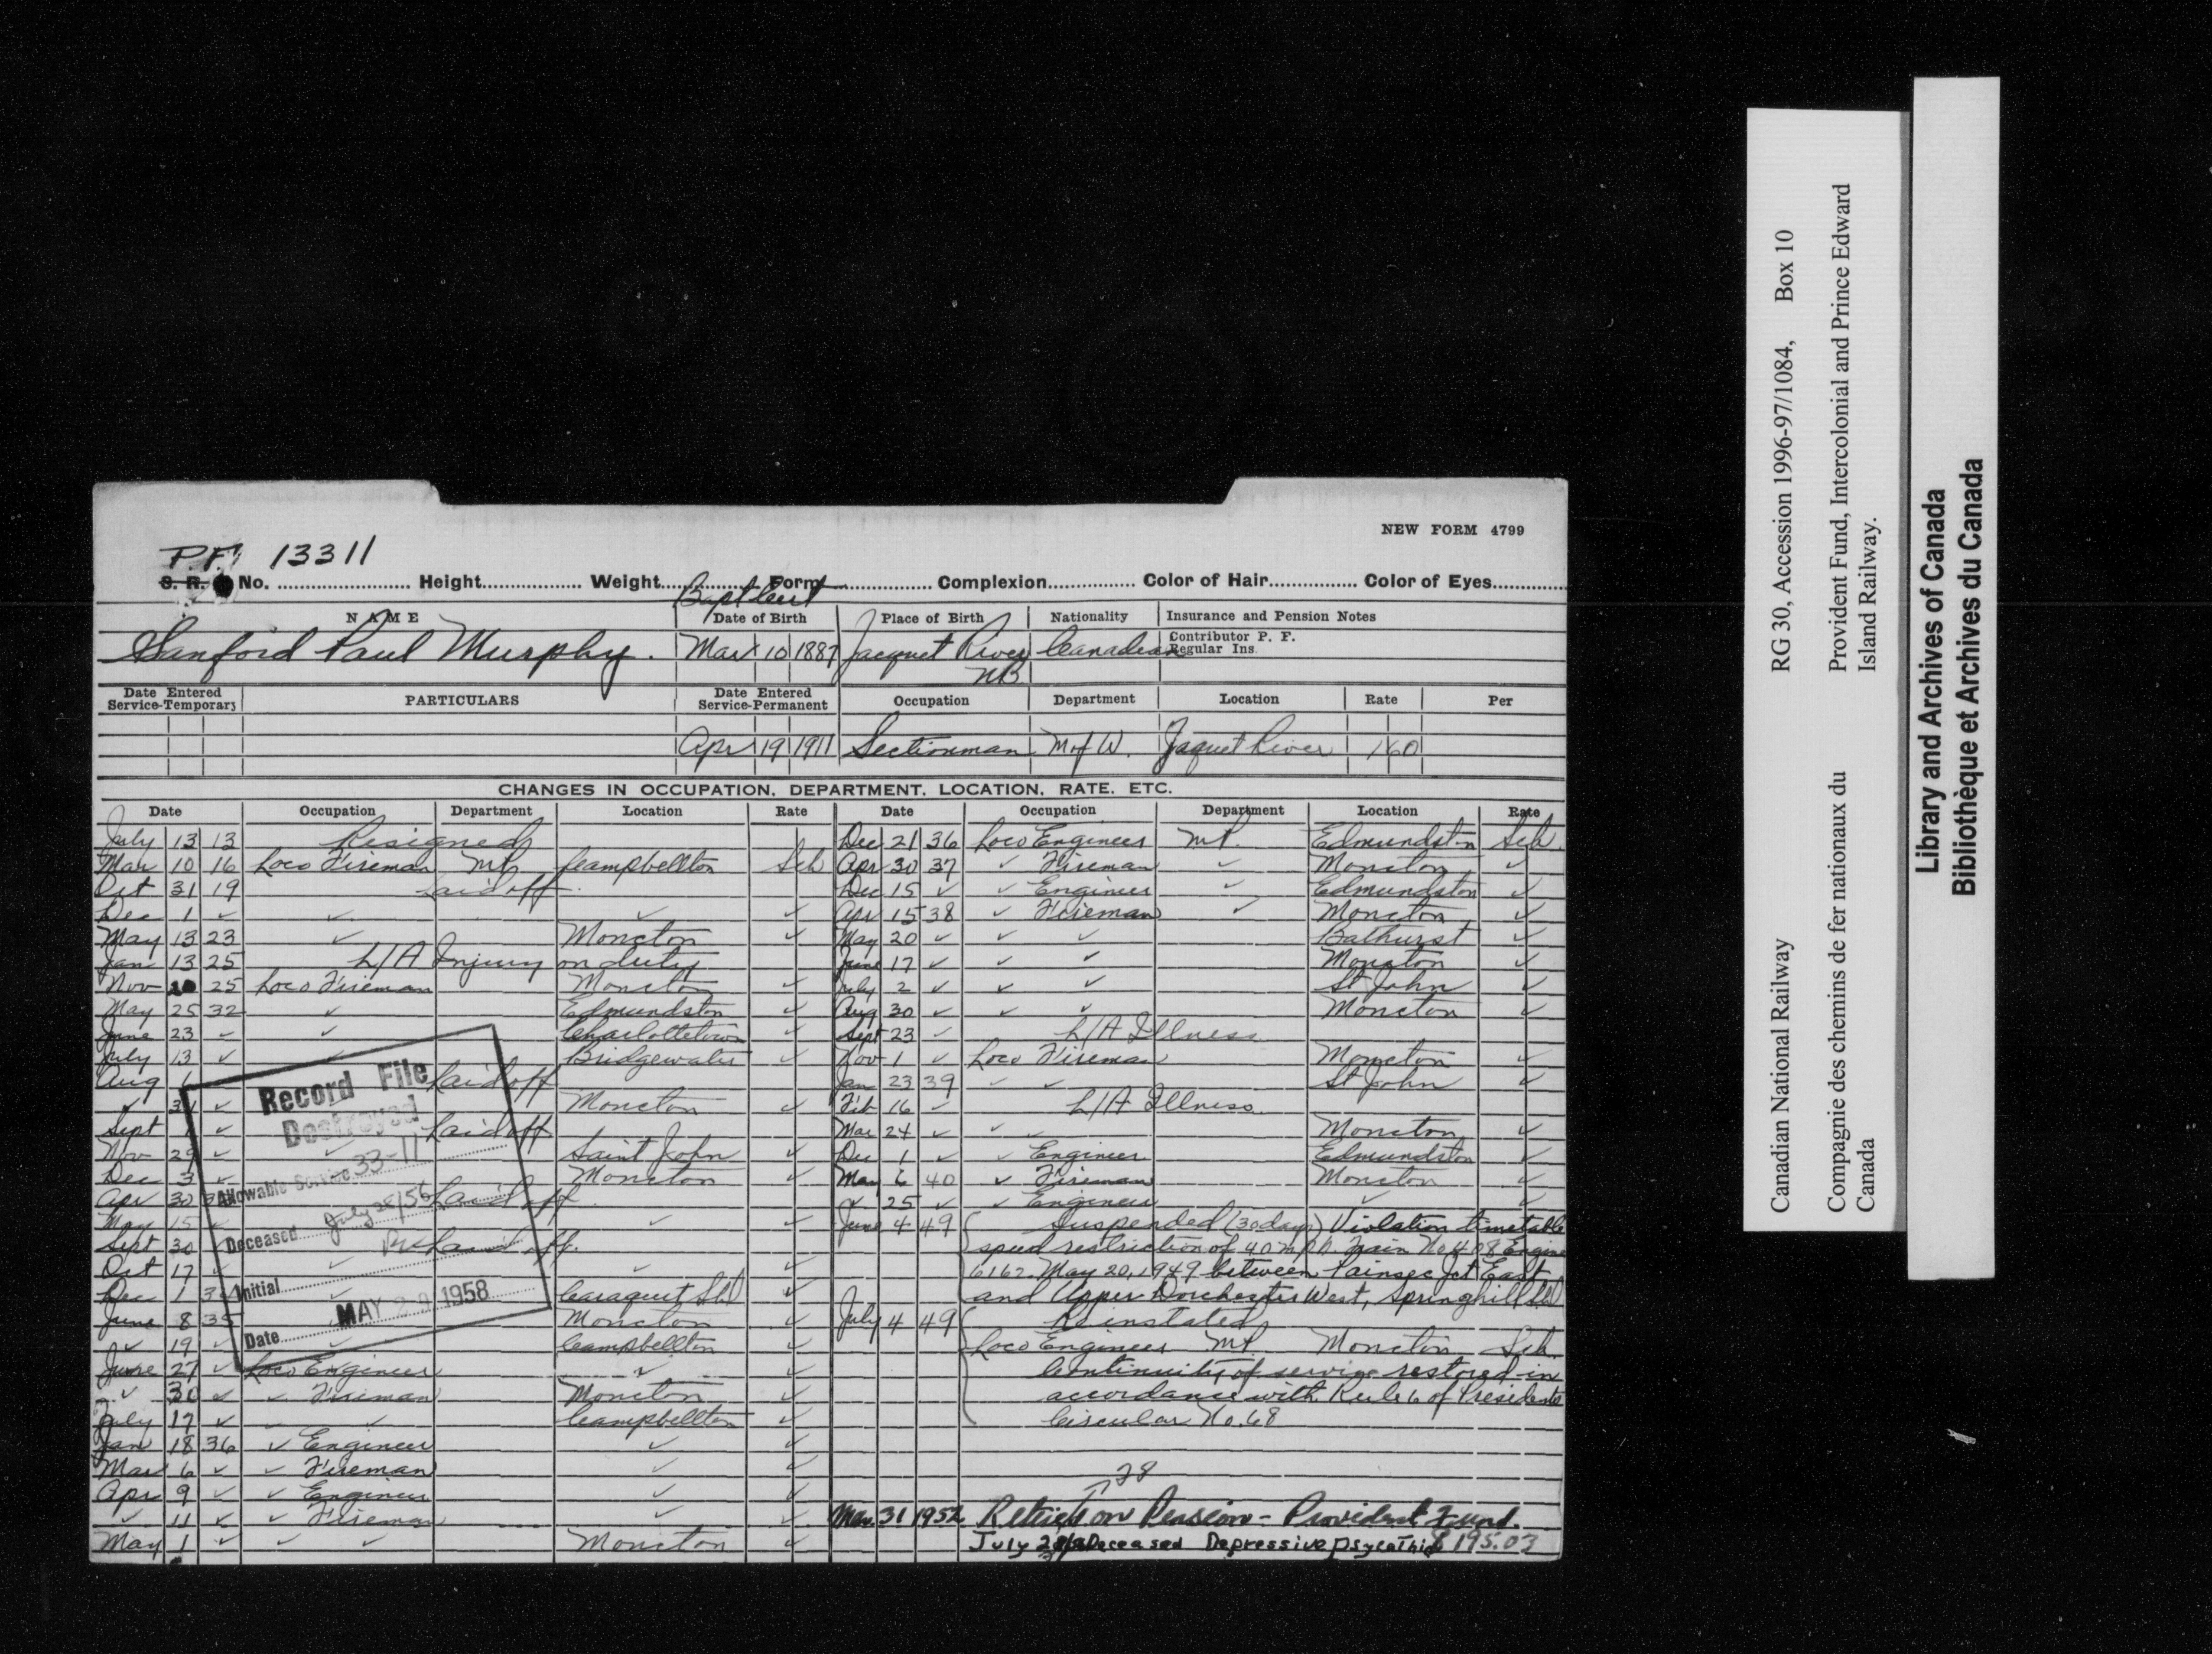 NEW FORM 4799
P.F. 13311
S. R. No. Height Weight Form Complexion Color of Hair Color of Eyes
Bapt Cert
NAME Date of Birth Place of Birth Nationality Insurance and Pension Notes
Contributor P. F.
Regular Ins.
Sanford Paul Murphy. Mar 10 1887 Jacquet River NB Canadian
Date Entered Service-Temporary PARTICULARS Date Entered Service-Permanent Occupation Department Location Rate Per
Apr 19 1911 Sectionman M of W. Jaquet River 160
CHANGES IN OCCUPATION, DEPARTMENT, LOCATION, RATE, ETC.
Date Occupation Department Location Rate
July 13 13 Resigned
Mar 10 16 Loco Fireman MP Campbellton Sch
Oct 31 19 Laid off.
Dec 1 ✓ ✓ ✓ ✓
May 13 23 ✓ Moncton ✓
Jan 13 25 L/A Injury on duty
Nov 25 Loco Fireman Moncton ✓
May 25 32 ✓ Edmundston ✓
June 23 ✓ ✓ Charlottetown ✓
July 13 ✓ ✓ Bridgewater ✓
Aug 1 Laid off
✓ 31 ✓ Moncton ✓
Sept 1 ✓ Laid off
Nov 29 ✓ ✓ Saint John ✓
Dec 3 ✓ Moncton ✓
Apr 30 Laid off
May 15 ✓ ✓ ✓
Sept 30 ✓ Laid off.
Oct 17 ✓ ✓ ✓ ✓
Dec 1 Caraquet Sbd ✓
June 8 35 Moncton ✓
✓ 19 ✓ ✓ Campbellton ✓
June 27 ✓ Loco Engineer ✓ ✓
✓ 30 ✓ ✓ Fireman Moncton ✓
July 17 ✓ ✓ ✓ Campbellton ✓
Jan 18 36 ✓ Engineer ✓ ✓
Mar 6 ✓ ✓ Fireman ✓ ✓
Apr 9 ✓ ✓ Engineer ✓ ✓
✓ 11 ✓ ✓ Fireman ✓ ✓
May 1 ✓ ✓ ✓ Moncton ✓
Record File
Destroyed
Allowable Service 33-11
Deceased July 28/56
Initial
MAY 1958
Date
Date Occupation Department Location Rate
Dec 21 36 Loco Engineer MP. Edmundston Sch.
Apr 30 37 ✓ Fireman ✓ Moncton ✓
Dec 15 ✓ ✓ Engineer ✓ Edmundston ✓
Apr 15 38 ✓ Fireman ✓ Moncton ✓
May 20 ✓ ✓ ✓ Bathurst ✓
June 17 ✓ ✓ ✓ Moncton ✓
July 2 ✓ ✓ ✓ St John ✓
Aug 30 ✓ ✓ ✓ Moncton ✓
Sept 23 ✓ L/A Illness
Nov 1 ✓ Loco Fireman Moncton ✓
Jan 23 39 ✓ ✓ St John ✓
Feb 16 ✓ L/A Illness.
Mar 24 ✓ ✓ ✓ Moncton ✓
Dec 1 ✓ ✓ Engineer Edmundston ✓
Mar 6 40 ✓ Fireman Moncton ✓
✓ 25 ✓ ✓ Engineer ✓ ✓
June 4 49 Suspended (30 days) Violation timetable
speed restriction of 40 m.p.h. Train No 408 Engine
6162. May 20, 1949 between Painsec Jct East
and Upper Dorchester West, Springhill Sbd
July 4 49 Reinstated
Loco Engineer MP. Moncton Sch.
Continuity of service restored in
accordance with Rule 6 of Presidents
Circular No. 68
28
Mar. 31 1952 Retired on Pension - Provident Fund.
July Deceased Depressive $195.03
Canadian National Railway RG 30, Accession 1996-97/1084, Box 10
Compagnie des chemins de fer nationaux du Canada Provident Fund, Intercolonial and Prince Edward Island Railway.
Library and Archives of Canada
Bibliothèque et Archives du Canada